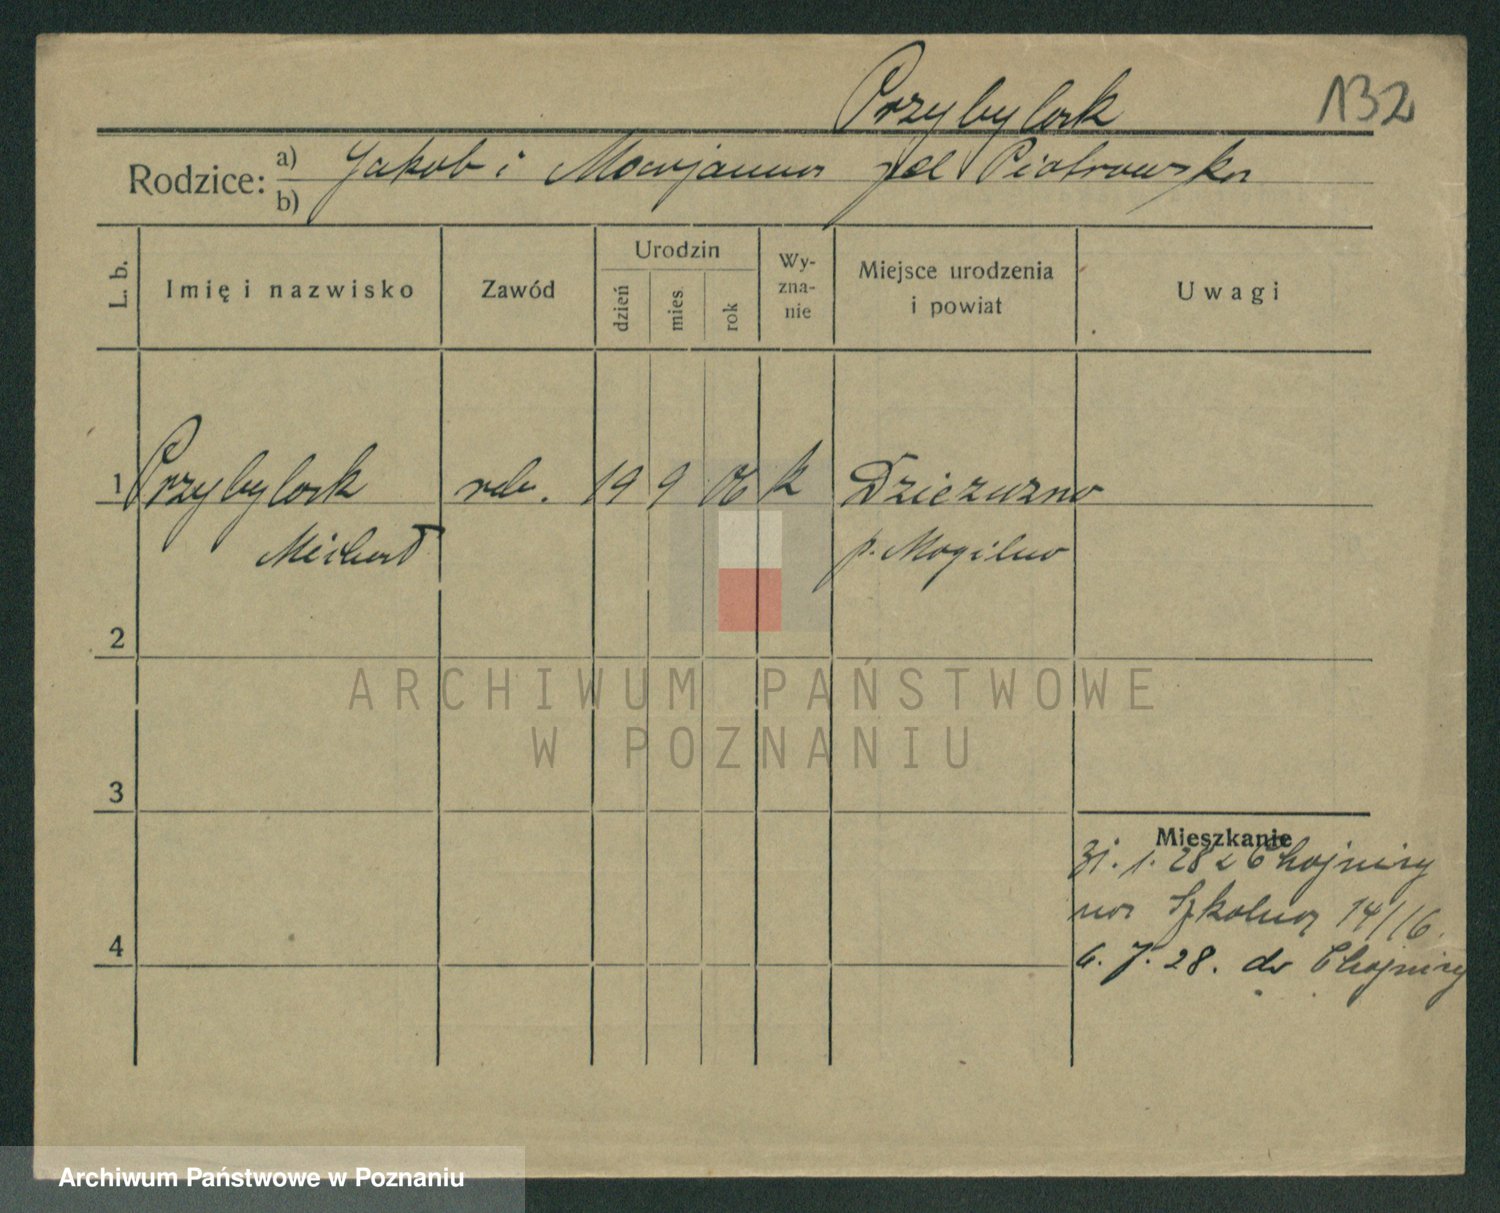 Przybylak 132
Rodzice: a) Jakób i Marjanna
b)
L. b. Imię i nazwisko Zawód Urodzin dzień mies rok Wy-zna-nie Miejsce urodzenia i powiat Uwagi
1 Przybylak rob. 19 9 06 k
Michał p. Mogilno
2
ARCHIWUM PAŃSTWOWE
W POZNANIU
3
Mieszkanie
31. 1. 28 z Chojnicy
na Szkolna 14/16.
4
6. 7. 28. do Chojnicy
Archiwum Państwowe w Poznaniu